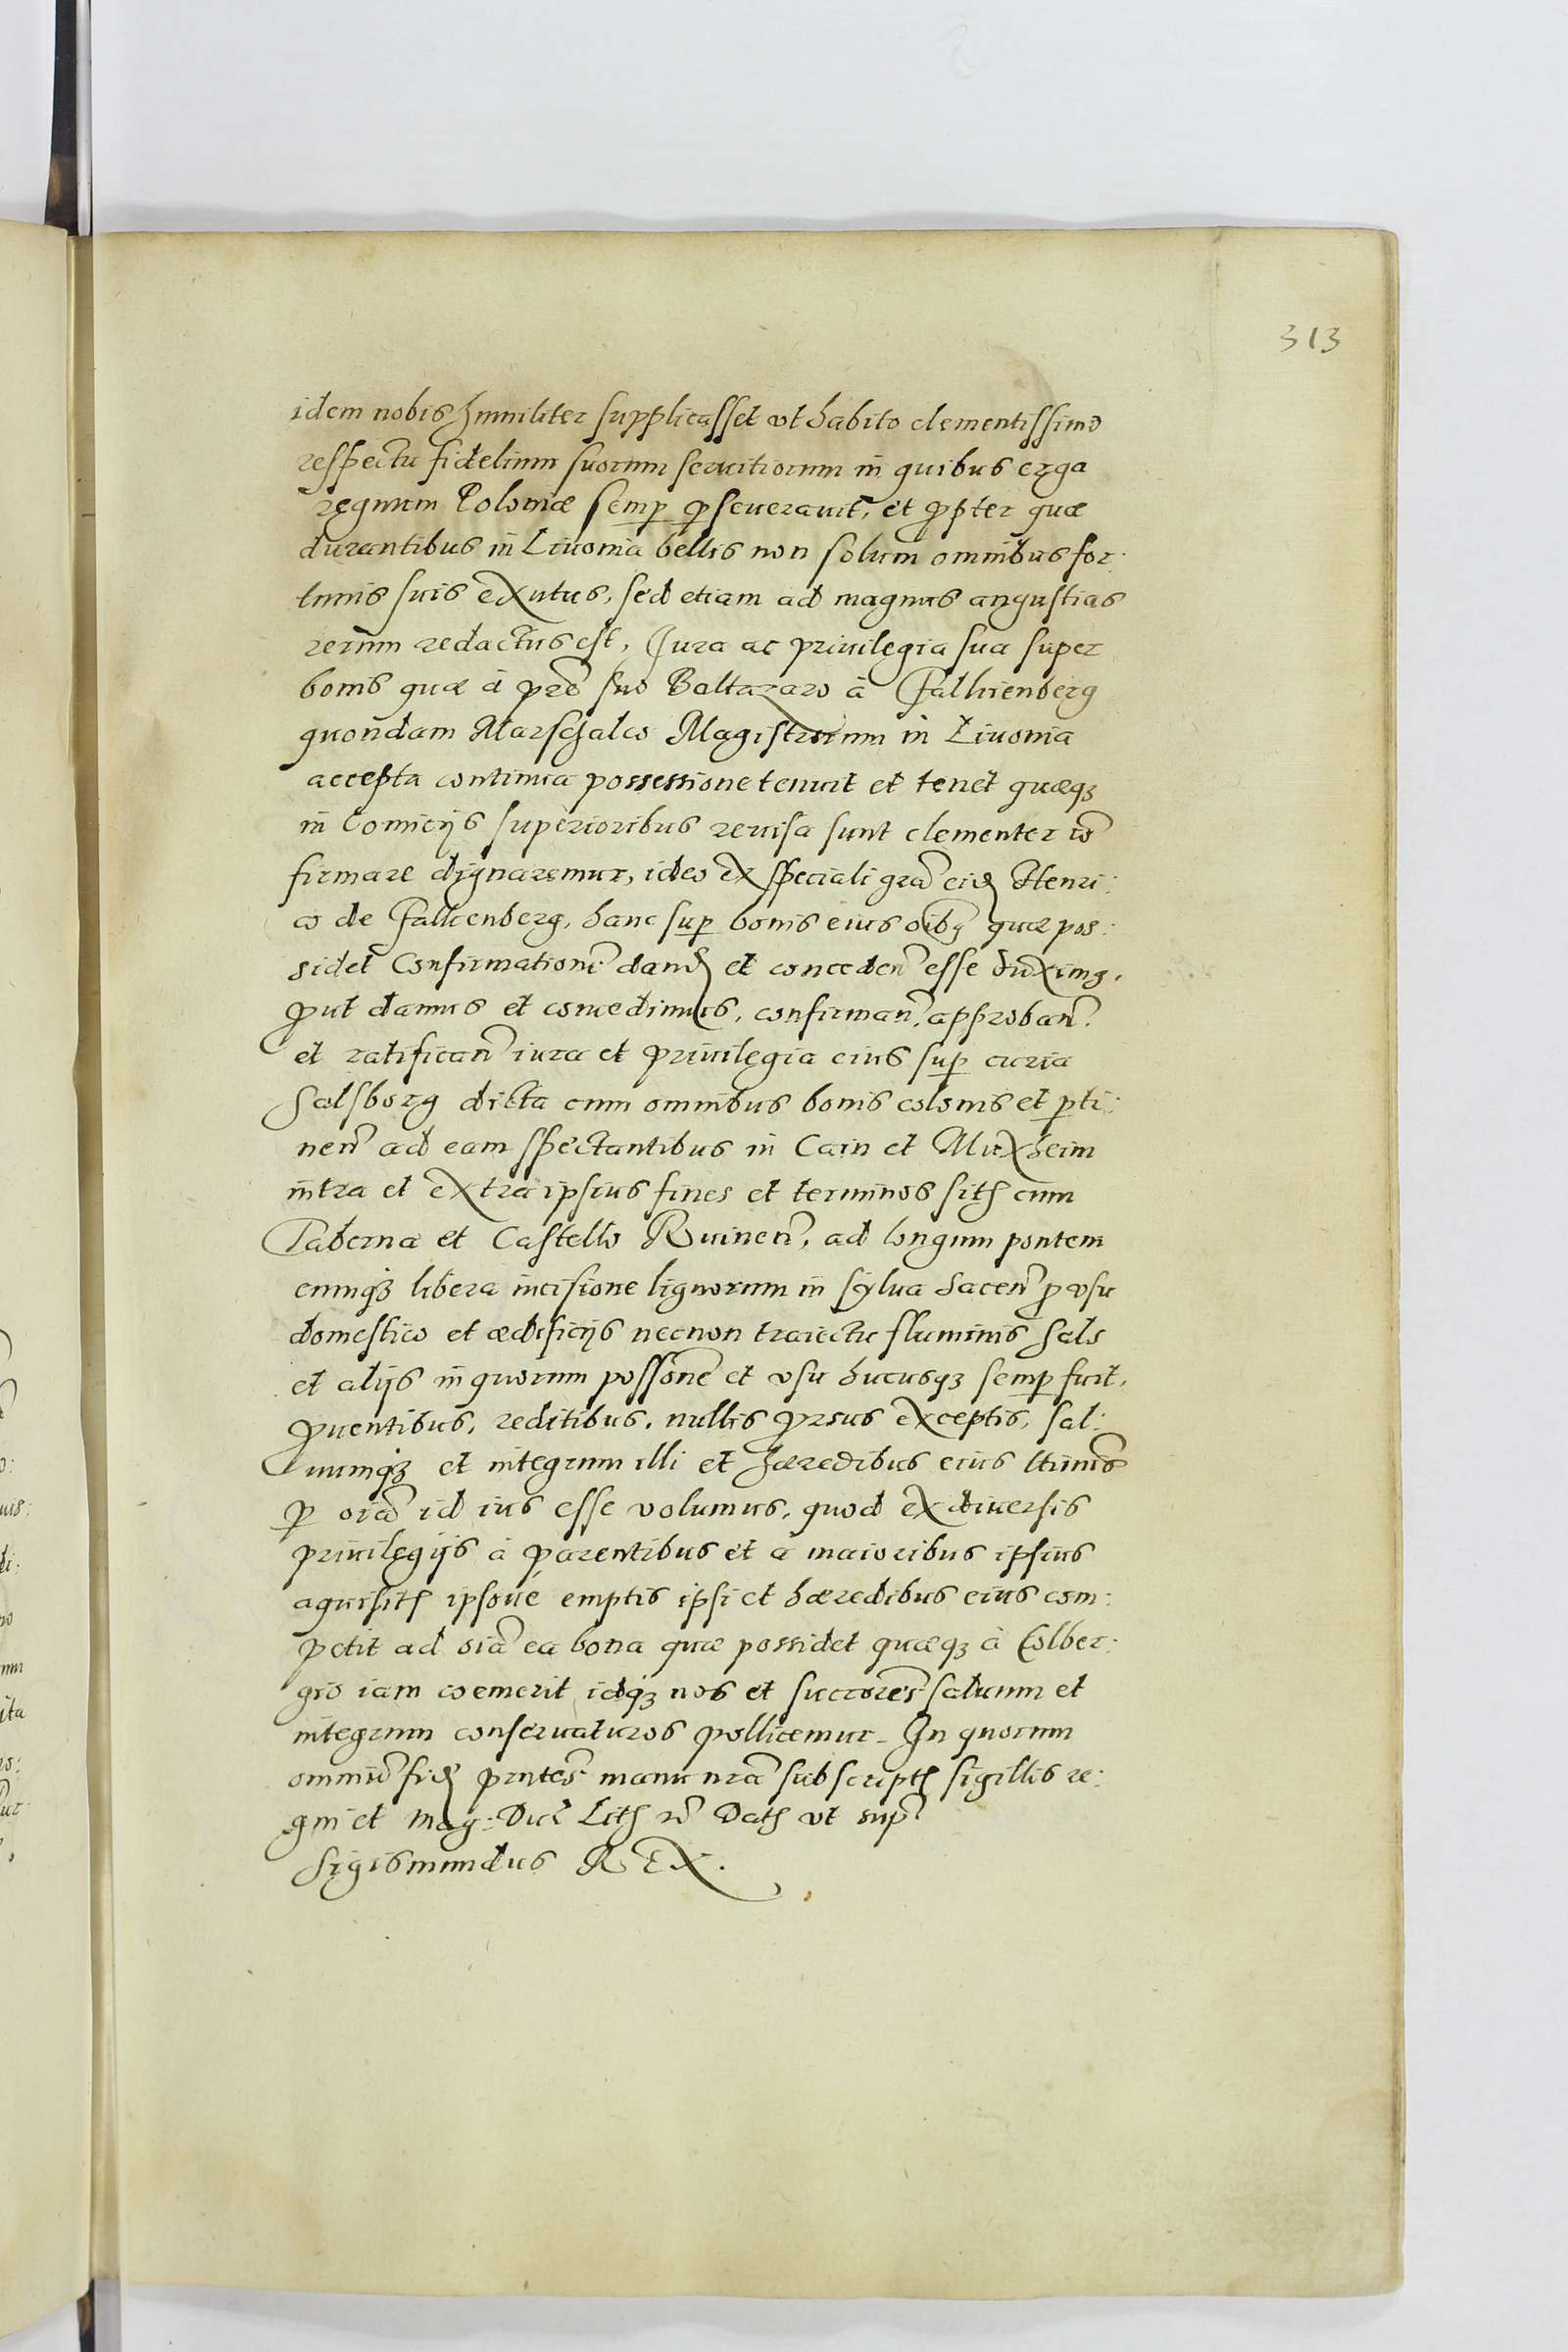 313
idem nobis humiliter supplicasset vt habito clementissimo
respectu fidelium suorum seruitiorum in quibus erga
regnum Poloniæ semp pseuerauit, et ppter quæ
durantibus in Liuonia bellis non solum omnibus for:
tunis suis exutus, sed etiam ad magnas angustias
rerum redactus est, Jura ac priuilegia sua super
bonis quæ à pre suo Baltazaro à Falkenberg
quondam Marschalco Magistrorum in Liuonia
accepta continua possessione tenuit et tenet quæq3
in Comicijs superioribus reuisa sunt clementer co
firmare dignaremur, ideo ex speciali gra eid Henri:
co de Falkenberg, hanc sup bonis eius oibq quæ pos:
sidet Confirmatione dand et conceden esse duximq.
put damus et concedimus, confirman, approban.
et ratifican iura et priuilegia eius sup curia
Salsborg dicta cum omnibus bonis colonis et pti:
nen ad eam spectantibus in Cain et Muxheim
intra et extra ipsius fines et terminos sith cum
Taberna et Castello Ruinen, ad longum pontem
cumq3 libera incisione lignorum in sylua Sacen p vsu
domestico et ædificijs necnon traiectu fluminis Sals
et alijs in quorum possone et vsu hucusq3 semp fuit,
puentibus, reditibus, nullis prsus exceptis, sal:
uumq3 et integrum illi et hæredibus eius ltimis
p oia id ius esse volumus, quod ex diuersis
priuilegijs à parentibus et à maioribus ipsius
aquisith ipsoue emptis ipsi et hæredibus eius com:
petit ad oia ea bona quæ possidet quæq3 à Colber:
gio iam coemerit idq3 nos et succores saluum et
integrum conseruaturos pollicemur. In quorum
omniu fid pntes manu nra subscripth sigillis re:
gni et Mag: Duc Lith rc Dath vt sup
Sigismundus REX.